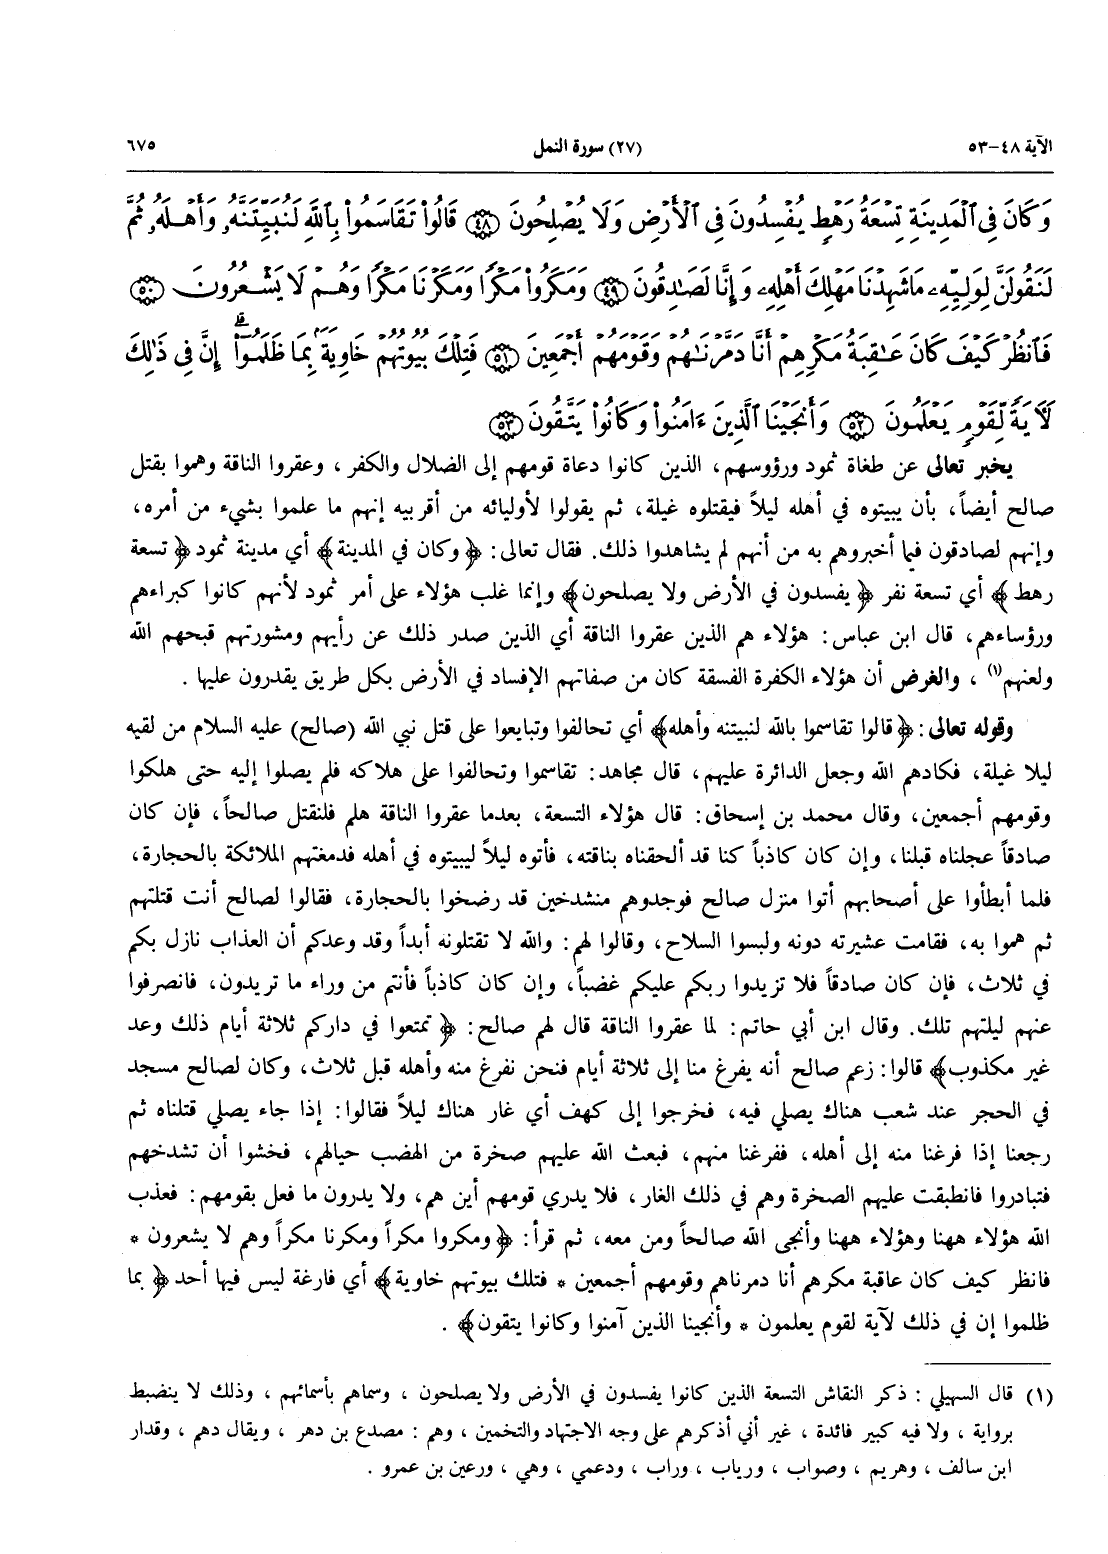 الآية ٤٨-٥٣ (٢٧) سورة النمل ٦٧٥
وَكَانَ فِى ٱلْمَدِينَةِ تِسْعَةُ رَهْطٍ يُفْسِدُونَ فِى ٱلْأَرْضِ وَلَا يُصْلِحُونَ ﴿٤٨﴾ قَالُوا۟ تَقَاسَمُوا۟ بِٱللَّهِ لَنُبَيِّتَنَّهُۥ وَأَهْلَهُۥ ثُمَّ
لَنَقُولَنَّ لِوَلِيِّهِۦ مَا شَهِدْنَا مَهْلِكَ أَهْلِهِۦ وَإِنَّا لَصَـٰدِقُونَ ﴿٤٩﴾ وَمَكَرُوا۟ مَكْرًا وَمَكَرْنَا مَكْرًا وَهُمْ لَا يَشْعُرُونَ ﴿٥٠﴾
فَٱنظُرْ كَيْفَ كَانَ عَـٰقِبَةُ مَكْرِهِمْ أَنَّا دَمَّرْنَـٰهُمْ وَقَوْمَهُمْ أَجْمَعِينَ ﴿٥١﴾ فَتِلْكَ بُيُوتُهُمْ خَاوِيَةًۢ بِمَا ظَلَمُوٓا۟ ۗ إِنَّ فِى ذَٰلِكَ
لَـَٔايَةً لِّقَوْمٍ يَعْلَمُونَ ﴿٥٢﴾ وَأَنجَيْنَا ٱلَّذِينَ ءَامَنُوا۟ وَكَانُوا۟ يَتَّقُونَ ﴿٥٣﴾
يخبر تعالى عن طغاة ثمود ورؤوسهم، الذين كانوا دعاة قومهم إلى الضلال والكفر، وعقروا الناقة وهموا بقتل
صالح أيضاً، بأن يبيتوه في أهله ليلاً فيقتلوه غيلة، ثم يقولوا لأوليائه من أقربيه إنهم ما علموا بشيء من أمره،
وإنهم لصادقون فيما أخبروهم به من أنهم لم يشاهدوا ذلك. فقال تعالى: ﴿وكان في المدينة﴾ أي مدينة ثمود ﴿تسعة
رهط﴾ أي تسعة نفر ﴿يفسدون في الأرض ولا يصلحون﴾ وإنما غلب هؤلاء على أمر ثمود لأنهم كانوا كبراءهم
ورؤساءهم، قال ابن عباس: هؤلاء هم الذين عقروا الناقة أي الذين صدر ذلك عن رأيهم ومشورتهم قبحهم الله
ولعنهم(١)، والغرض أن هؤلاء الكفرة الفسقة كان من صفاتهم الإفساد في الأرض بكل طريق يقدرون عليها.
وقوله تعالى: ﴿قالوا تقاسموا بالله لنبيتنه وأهله﴾ أي تحالفوا وتبايعوا على قتل نبي الله (صالح) عليه السلام من لقيه
ليلا غيلة، فكادهم الله وجعل الدائرة عليهم، قال مجاهد: تقاسموا وتحالفوا على هلاكه فلم يصلوا إليه حتى هلكوا
وقومهم أجمعين، وقال محمد بن إسحاق: قال هؤلاء التسعة، بعدما عقروا الناقة هلم فلنقتل صالحاً، فإن كان
صادقاً عجلناه قبلنا، وإن كان كاذباً كنا قد ألحقناه بناقته، فأتوه ليلاً ليبيتوه في أهله فدمغتهم الملائكة بالحجارة،
فلما أبطأوا على أصحابهم أتوا منزل صالح فوجدوهم منشدخين قد رضخوا بالحجارة، فقالوا لصالح أنت قتلتهم
ثم هموا به، فقامت عشيرته دونه ولبسوا السلاح، وقالوا لهم: والله لا تقتلونه أبداً وقد وعدكم أن العذاب نازل بكم
في ثلاث، فإن كان صادقاً فلا تزيدوا ربكم عليكم غضباً، وإن كان كاذباً فأنتم من وراء ما تريدون، فانصرفوا
عنهم ليلتهم تلك. وقال ابن أبي حاتم: لما عقروا الناقة قال لهم صالح: ﴿تمتعوا في داركم ثلاثة أيام ذلك وعد
غير مكذوب﴾ قالوا: زعم صالح أنه يفرغ منا إلى ثلاثة أيام فنحن نفرغ منه وأهله قبل ثلاث، وكان لصالح مسجد
في الحجر عند شعب هناك يصلي فيه، فخرجوا إلى كهف أي غار هناك ليلاً فقالوا: إذا جاء يصلي قتلناه ثم
رجعنا إذا فرغنا منه إلى أهله، ففرغنا منهم، فبعث الله عليهم صخرة من الهضب حيالهم، فخشوا أن تشدخهم
فتبادروا فانطبقت عليهم الصخرة وهم في ذلك الغار، فلا يدري قومهم أين هم، ولا يدرون ما فعل بقومهم: فعذب
الله هؤلاء ههنا وهؤلاء ههنا وأنجى الله صالحاً ومن معه، ثم قرأ: ﴿ومكروا مكراً ومكرنا مكراً وهم لا يشعرون *
فانظر كيف كان عاقبة مكرهم أنا دمرناهم وقومهم أجمعين * فتلك بيوتهم خاوية﴾ أي فارغة ليس فيها أحد ﴿بما
ظلموا إن في ذلك لآية لقوم يعلمون * وأنجينا الذين آمنوا وكانوا يتقون﴾.
(١) قال السهيلي: ذكر النقاش التسعة الذين كانوا يفسدون في الأرض ولا يصلحون، وسماهم بأسمائهم، وذلك لا ينضبط
برواية، ولا فيه كبير فائدة، غير أني أذكرهم على وجه الاجتهاد والتخمين، وهم: مصدع بن دهر، ويقال دهم، وقدار
ابن سالف، وهريم، وصواب، ورياب، وراب، ودعمي، وهي، ورعين بن عمرو.